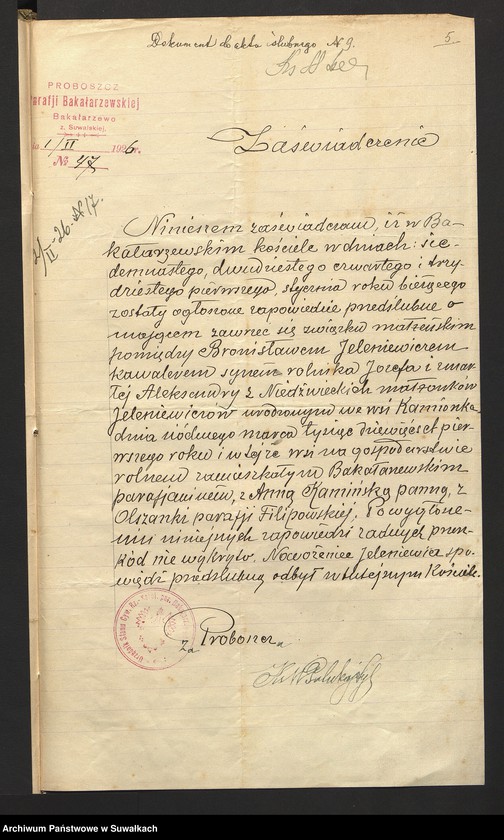 Dokument do aktu ślubnego N 9.
5
PROBOSZCZ
Parafji Bakałarzewskiej
Bakałarzewo
z. Suwalskiej.
1/II 1926 r.
№ 47
2/II-26. N 17.
Zaświadczenie
Niniejszem zaświadczam, iż w Ba-
kałarzewskim kościele w dniach: sie-
demnastego, dwudziestego czwartego i trzy-
dziestego pierwszego, stycznia roku bieżącego
zostały ogłoszone zapowiedzie przedślubne o
mającem zawrzeć się związku małżeńskim
pomiędzy Bronisławem Jeleniewiczem
kawalerem synem rolnika Józefa i zmar-
łej Aleksandry z Niedźwieckich małżonków
Jeleniewiczów urodzonym we wsi Kamionka
dnia siódmego marca tysiąc dziewięcset pier-
wszego roku i w tejże wsi na gospodarstwie
rolnem zamieszkałym Bakałarzewskim
parafjaninem, z Anną Kamińską panną, z
Olszanki parafji Filipowskiej. Po wygłosze-
niu niniejszych zapowiedzi żadnych przesz-
kód nie wykryto. Nowożeniec Jeleniewicz spo-
wiedź przedślubną odbył w tutejszym Kościele.
Za Proboszcza